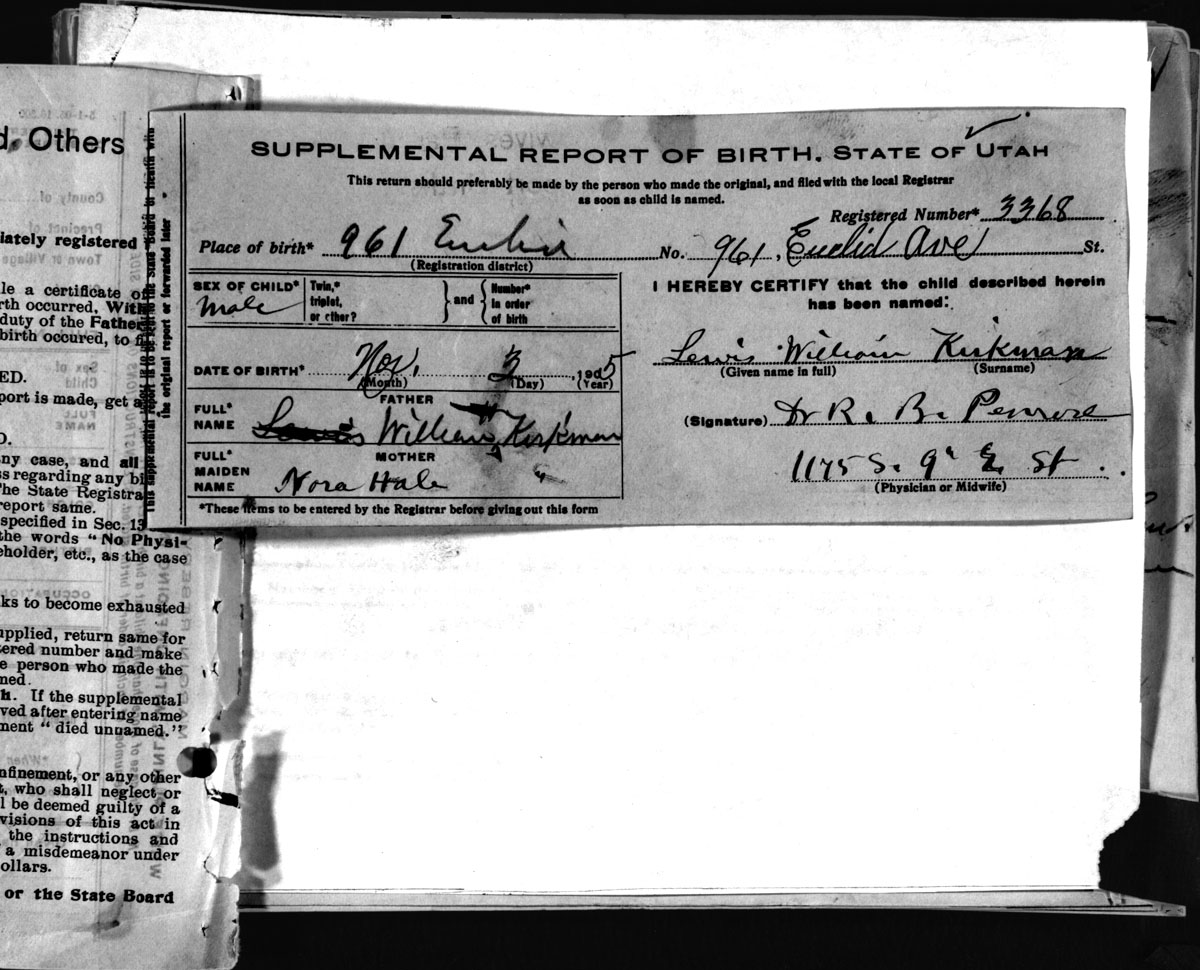 d, Others
iately registered
le a certificate of
rth occurred, With
duty of the Father
birth occured, to fi
ED.
port is made, get a
D.
ny case, and all
ss regarding any bi
The State Registra
report same.
specified in Sec. 13
the words "No Physi-
eholder, etc., as the case
ks to become exhausted
upplied, return same for
tered number and make
e person who made the
ned.
h. If the supplemental
ved after entering name
ment "died unnamed."
nfinement, or any other
t, who shall neglect or
l be deemed guilty of a
visions of this act in
the instructions and
a misdemeanor under
ollars.
or the State Board
the original report or forwarded later
SUPPLEMENTAL REPORT OF BIRTH. STATE OF UTAH
This return should preferably be made by the person who made the original, and filed with the local Registrar
as soon as child is named.
Registered Number* 3368
Place of birth* 961 Euclid No. 961, Euclid Ave St.
(Registration district)
SEX OF CHILD* Male
Twin,* triplet, or other? and Number* in order of birth
DATE OF BIRTH* Nov. 3, 1905
(Month) (Day) (Year)
FATHER
FULL* NAME Lewis William Kirkman
MOTHER
FULL* MAIDEN NAME Nora Hale
*These items to be entered by the Registrar before giving out this form
I HEREBY CERTIFY that the child described herein
has been named:
Lewis William Kirkman
(Given name in full) (Surname)
(Signature) Dr R. B. Penrose
1175 S. 9th E St.
(Physician or Midwife)